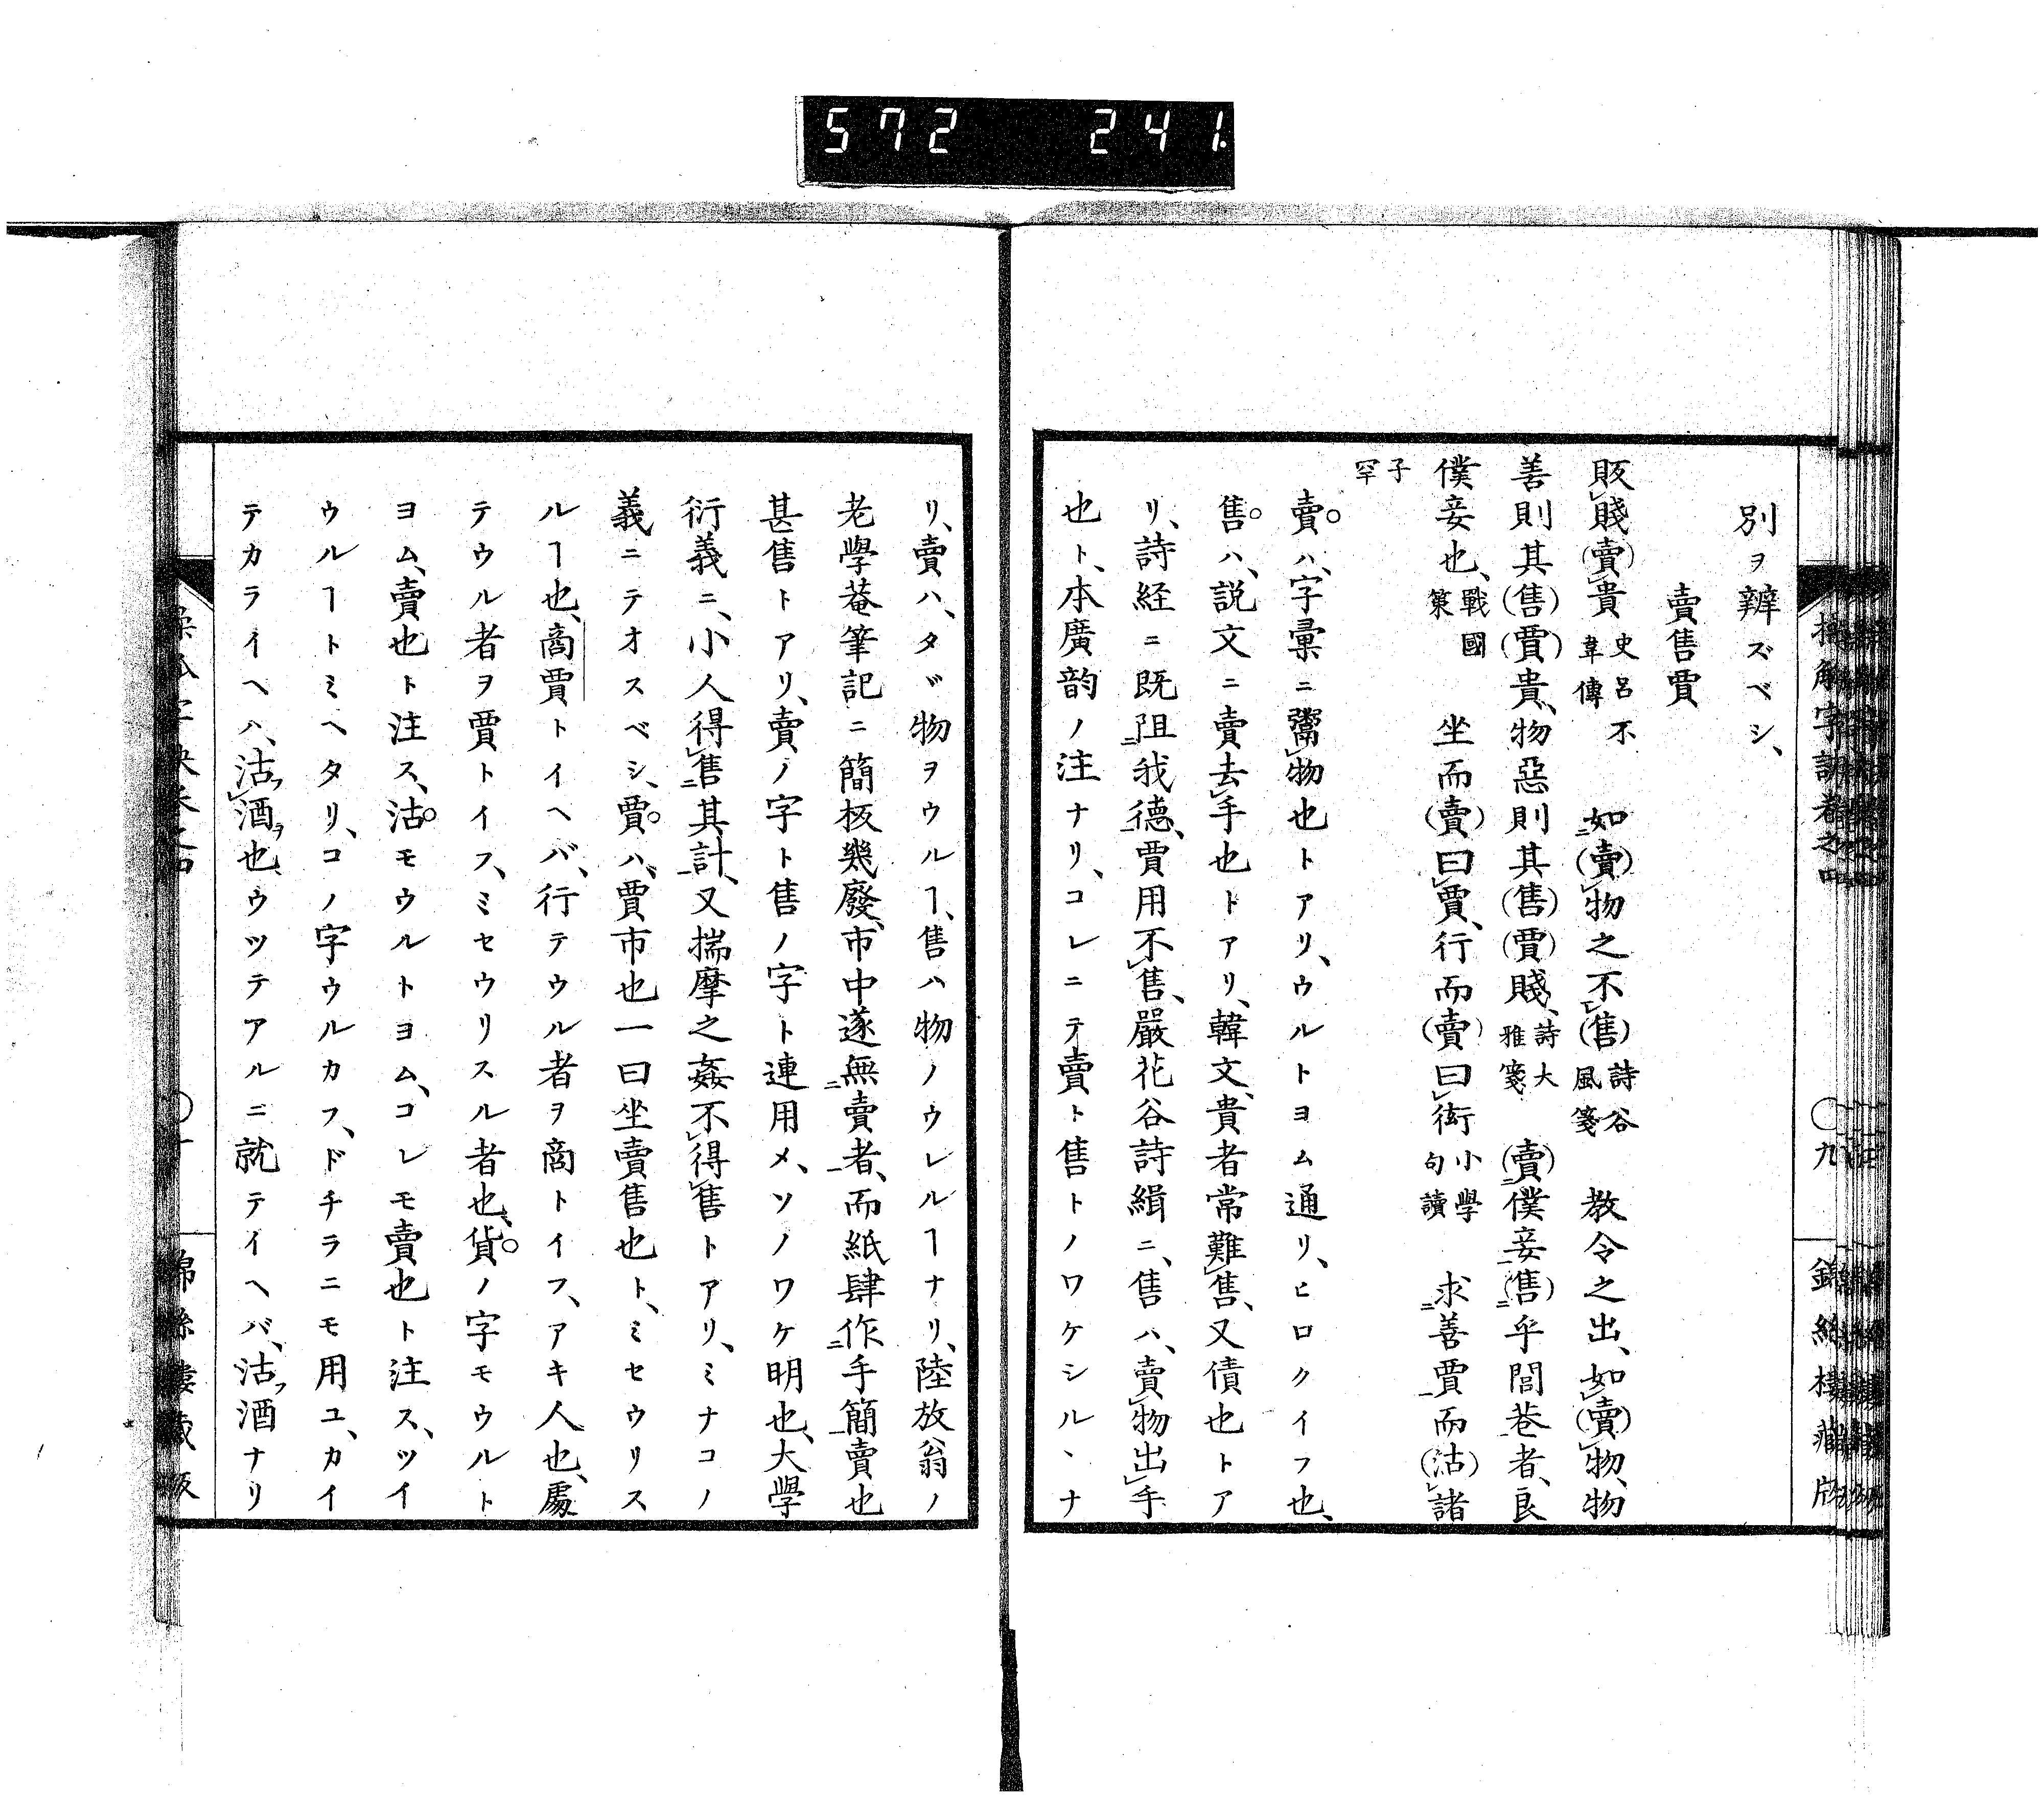 572 241.
別ヲ辨ズベシ、
賣售賈
販賤(賣)貴 史呂不韋傳 如(賣)物之不(售) 詩谷風箋 教令之出、如(賣)物、物
善則其(售)(賈)貴、物惡則其(售)(賈)賤、 詩大雅箋 (賣)僕妾(售)乎閭巷者、良
僕妾也、 戰國策 坐而(賣)曰賈、行而(賣)曰衒 小學句讀 求善賈而(沽)諸
子罕
賣ハ、字彙ニ鬻物也トアリ、ウルトヨム通リ、ヒロクイフ也、
售ハ、説文ニ賣去手也トアリ、韓文、貴者常難售、又債也トア
リ、詩経ニ既阻我德、賈用不售、嚴花谷詩緝ニ、售ハ、賣物出手
也ト、本廣韵ノ注ナリ、コレニテ賣ト售トノワケシルヽナ
リ、賣ハ、タヾ物ヲウルヿ、售ハ物ノウレルヿナリ、陸放翁ノ
老學菴筆記ニ簡板幾廢、市中遂無賣者、而紙肆作手簡賣也
甚售トアリ、賣ノ字ト售ノ字ト連用メ、ソノワケ明也、大學
衍義ニ、小人得售其計、又揣摩之姦不得售トアリ、ミナコノ
義ニテオスベシ、賈ハ、賈市也一曰坐賣售也ト、ミセウリス
ルヿ也、商賈トイヘバ、行テウル者ヲ商トイフ、アキ人也、處
テウル者ヲ賈トイフ、ミセウリスル者也、貨ノ字モウルト
ヨム、賣也ト注ス、沽モウルトヨム、コレモ賣也ト注ス、ツイ
ウルヿトミヘタリ、コノ字ウルカフ、ドチラニモ用ユ、カイ
テカライヘハ、沽フ酒ヲ也、ウツテアルニ就テイヘバ、沽フ酒ナリ